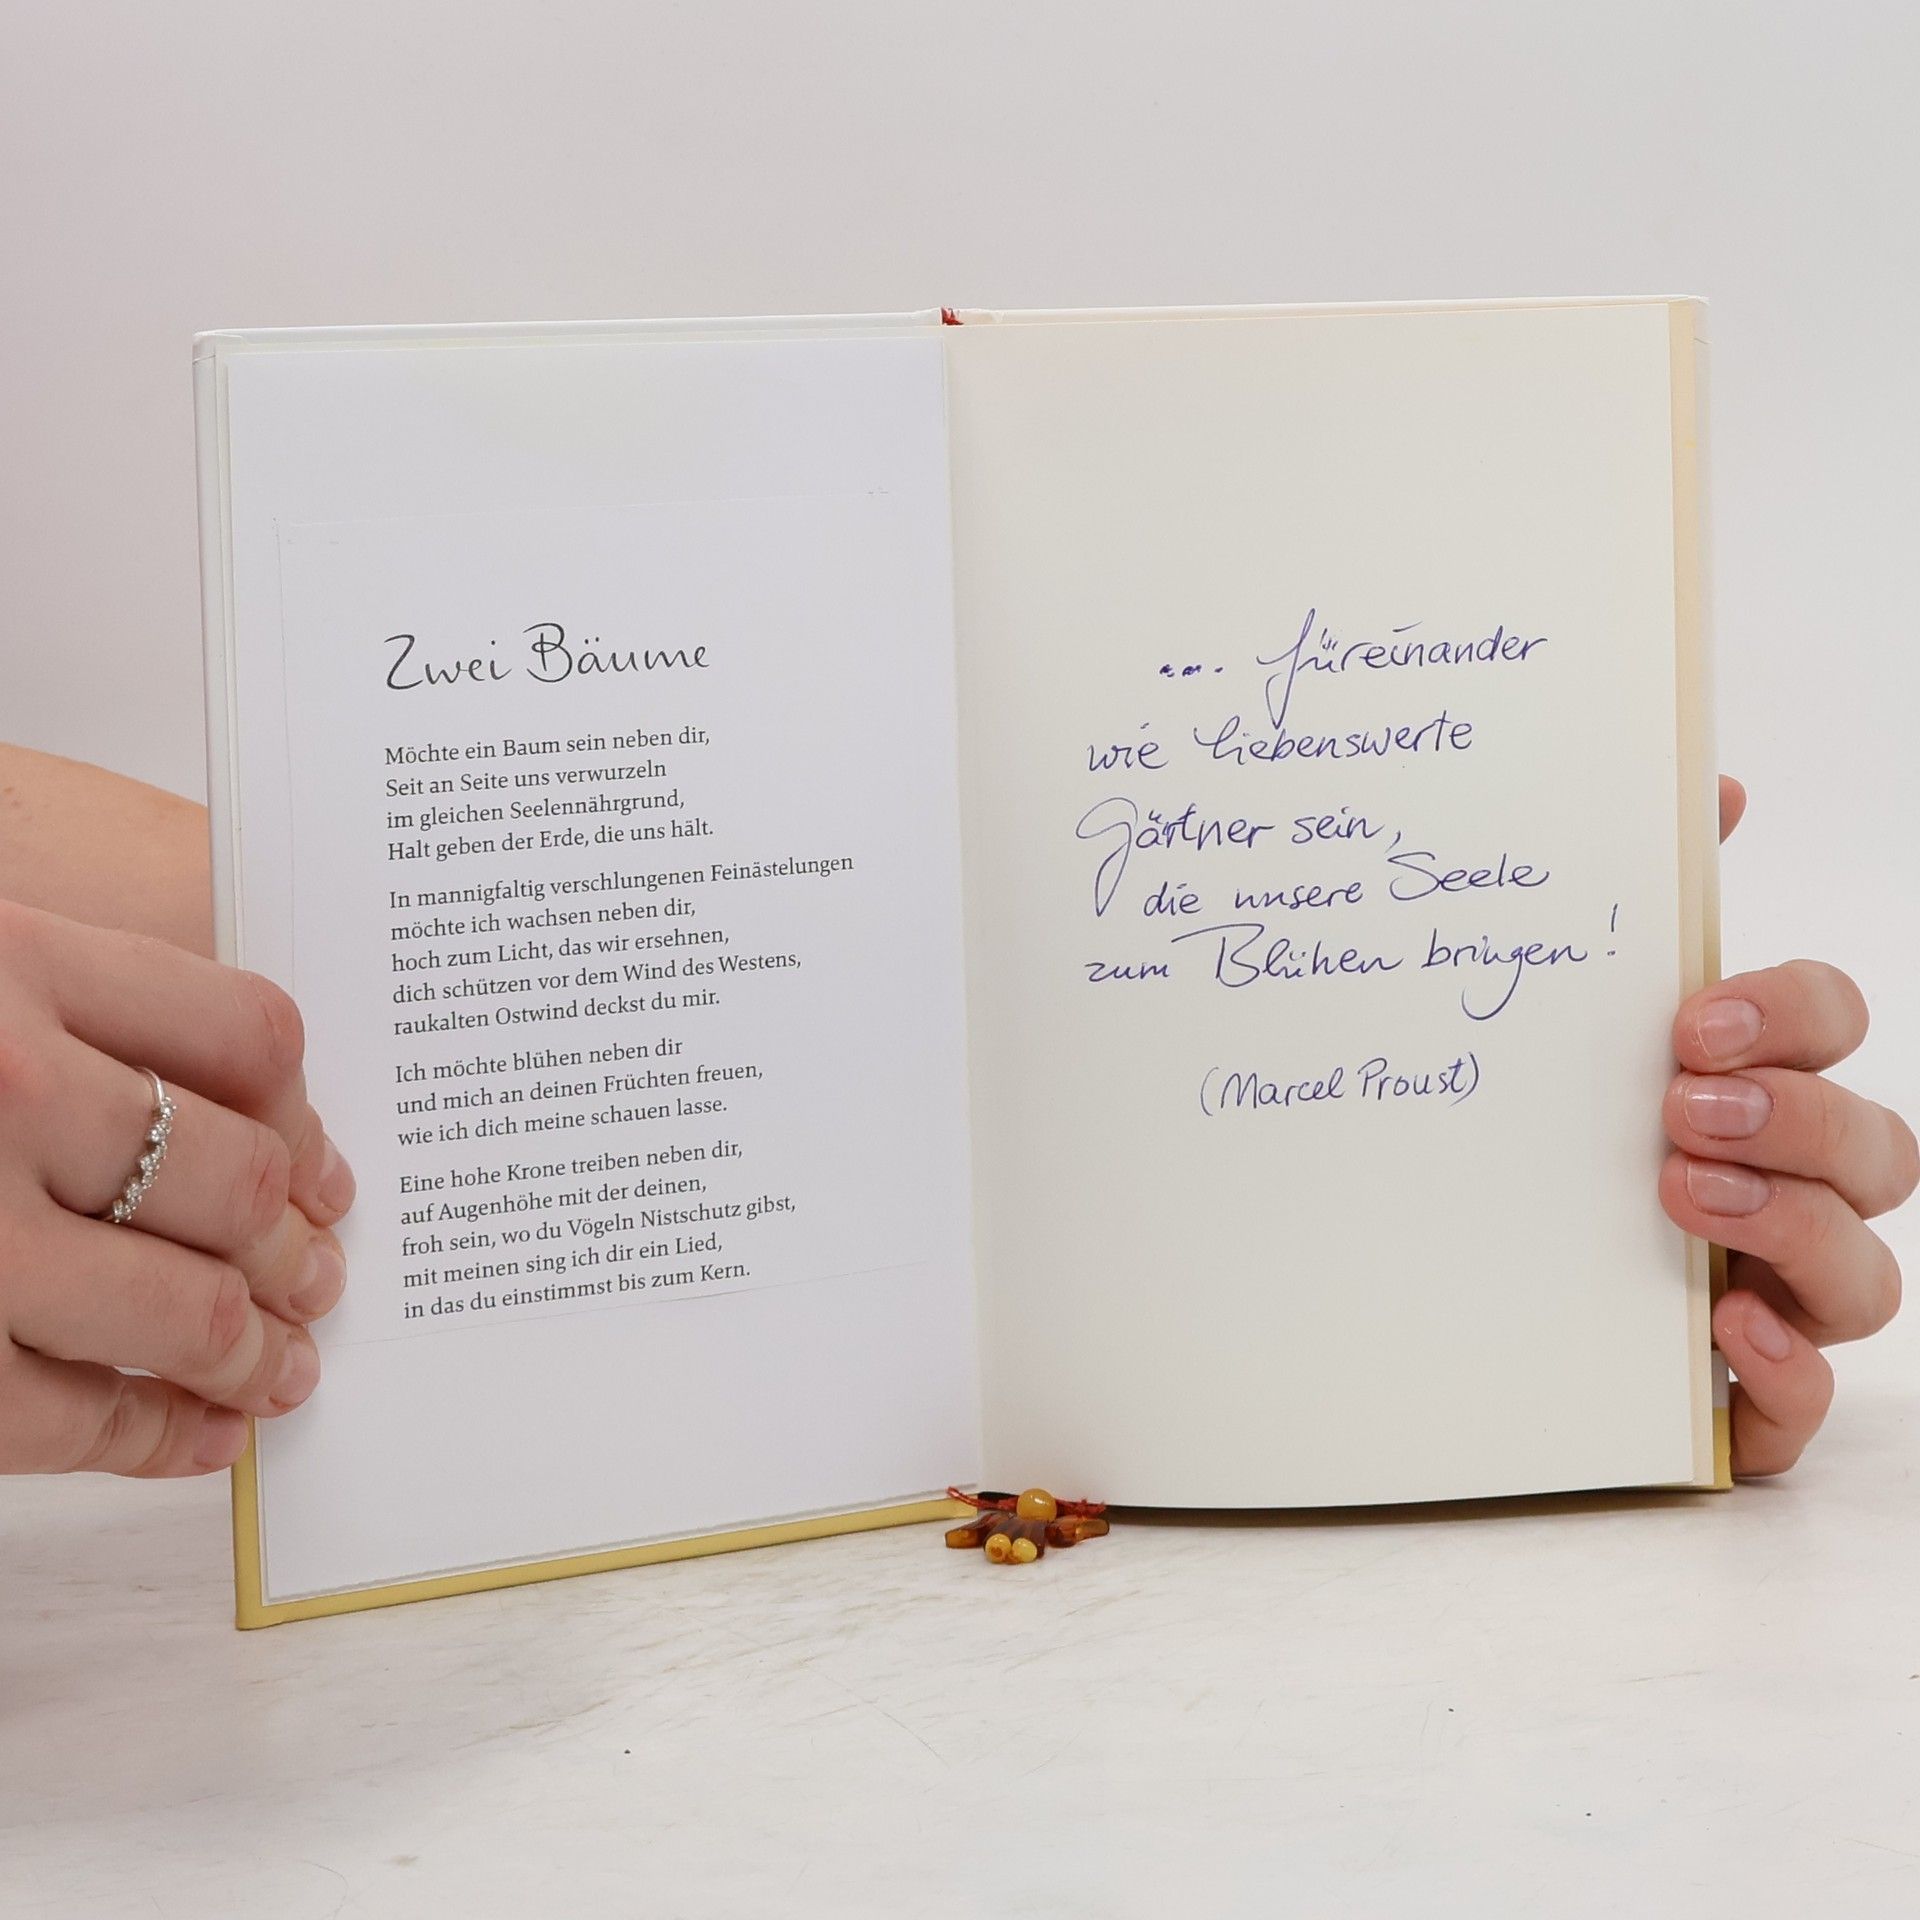 Zwei Bäume
Möchte ein Baum sein neben dir,
Seit an Seite uns verwurzeln
im gleichen Seelennährgrund,
Halt geben der Erde, die uns hält.
In mannigfaltig verschlungenen Feinästelungen
möchte ich wachsen neben dir,
hoch zum Licht, das wir ersehnen,
dich schützen vor dem Wind des Westens,
raukalten Ostwind deckst du mir.
Ich möchte blühen neben dir
und mich an deinen Früchten freuen,
wie ich dich meine schauen lasse.
Eine hohe Krone treiben neben dir,
auf Augenhöhe mit der deinen,
froh sein, wo du Vögeln Nistschutz gibst,
mit meinen sing ich dir ein Lied,
in das du einstimmst bis zum Kern.
.... füreinander
wie liebenswerte
Gärtner sein,
die unsere Seele
zum Blühen bringen!
(Marcel Proust)